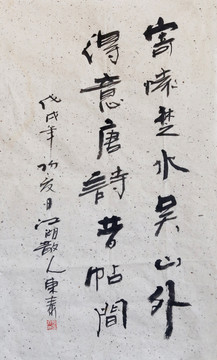 寄懷楚水吴山外
得意唐詩晉帖間
戊戌年初夏日江湖散人東素